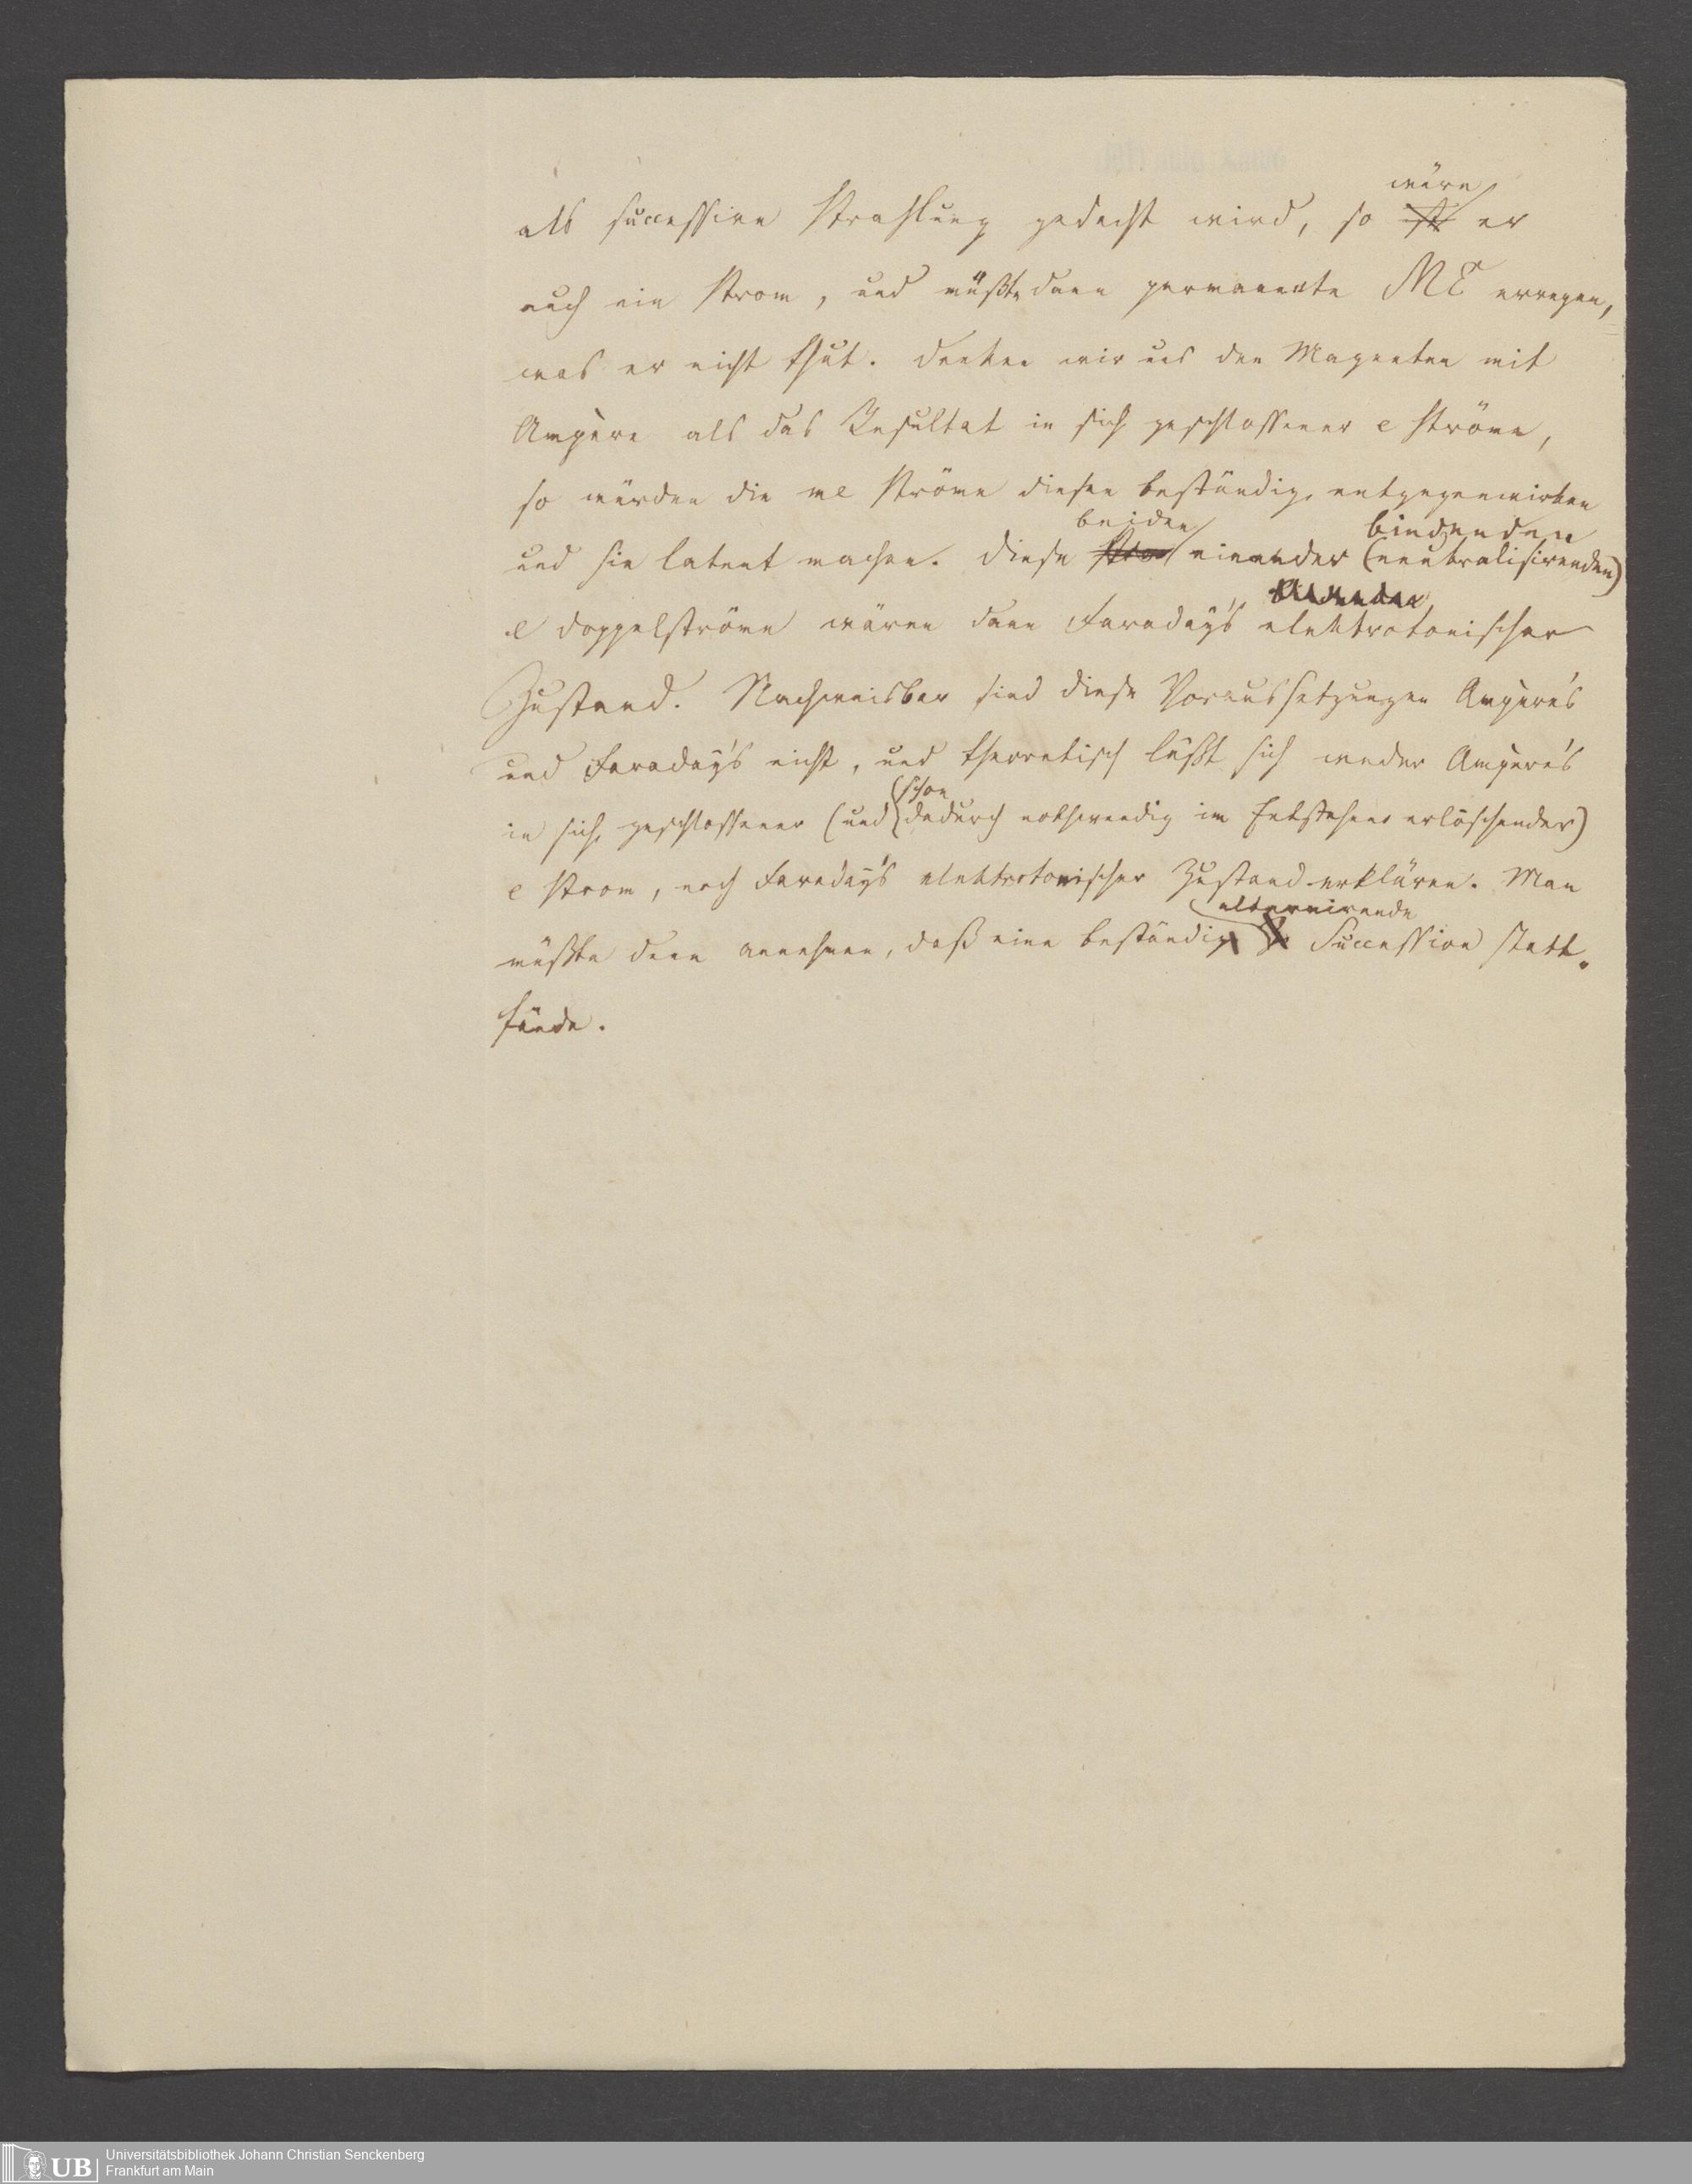 wäre
als successive Strahlung gedacht wird, so ist er
auch ein Strom, und müßte dann permanente ME erregen,
was er nicht thut. Denken wir uns den Magneten mit
Ampère als das Resultat in sich geschlossener e Ströme,
so würden die me Ströme diesen beständig entgegenwirken
beiden bindenden
und sie latent machen. Diese Strom einander (neutralisirenden)
e Doppelströme wären dann Faraday's elektrotonischer
Zustand. Nachweisbar sind diese Voraussetzungen Ampère's
und Faraday's nicht, und theoretisch läßt sich weder Ampère's
schon
in sich geschlossener (und dadurch nothwendig im Entstehen erlöschender)
e Strom, noch Faraday's elektrotonischer Zustand erklären. Man
alternirende
müßte denn annehmen, daß eine beständig Succession statt-
fände.
Universitätsbibliothek Johann Christian Senckenberg
UB Frankfurt am Main